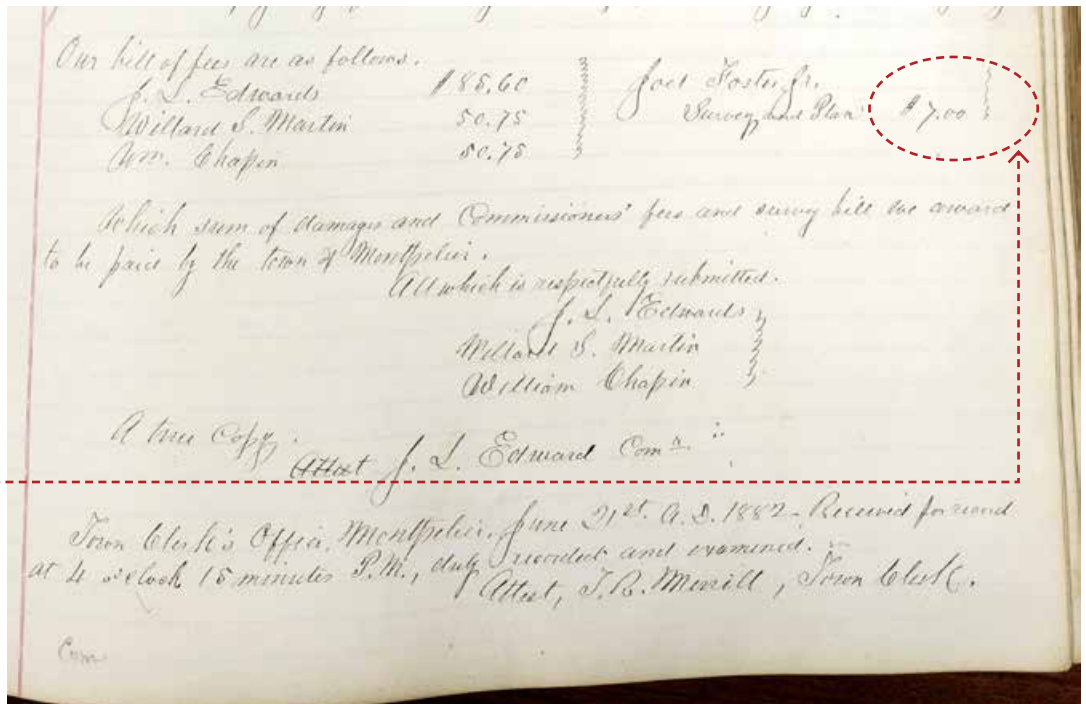 Our bill of fees are as follows.
J. L. Edwards $85.60 Joel Foster Jr.
Willard S. Martin 50.75 Survey and Plan $7.00
Wm. Chapin 50.75
Which sum of damages and Commissioners' fees and survey bill we award
to be paid by the town of Montpelier.
All which is respectfully submitted.
J. L. Edwards
Willard S. Martin
William Chapin
A true Copy.
Attest J. L. Edward Comr
Town Clerk's Office, Montpelier, June 21st. A.D. 1882 - Received for record
at 4 o'clock 15 minutes P.M., duly recorded and examined.
Attest, T. R. Merrill, Town Clerk.
Com